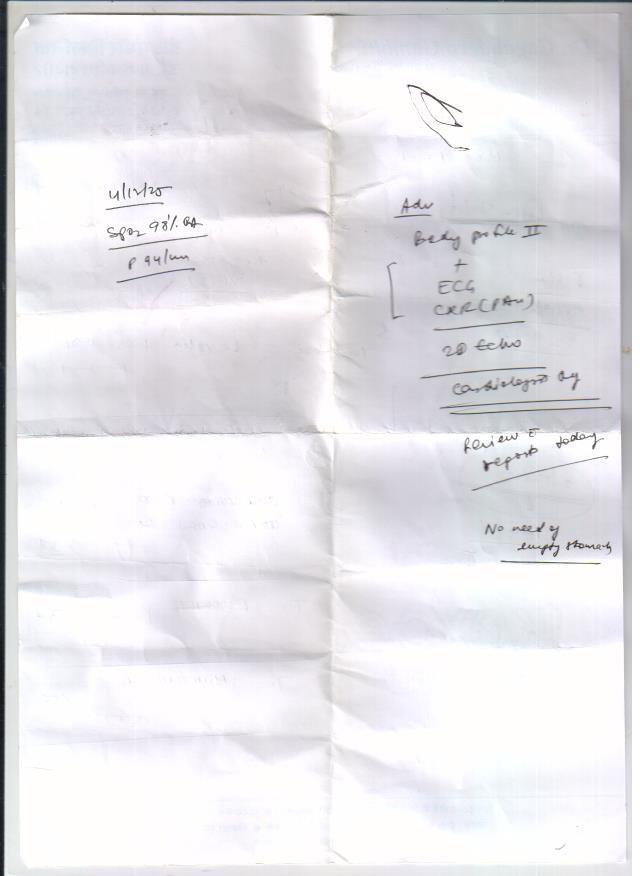 4/12/25
SpO2 98% RA
P 94/min
Adv
Body profile II
+
ECG
CXR (PAV)
2D Echo
Cardiologist
Review c̄
reports today
No need of
empty stomach